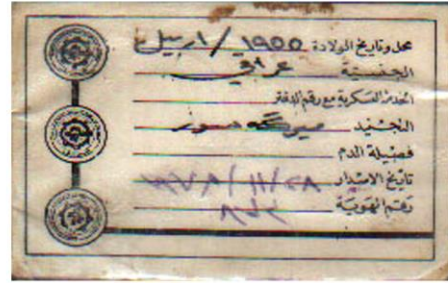 محل وتاريخ الولادة ١٩٥٥ / اربيل
الجنسية عراقي
الخدمة العسكرية مع رقم الدفتر
التجنيد
فصيلة الدم
تاريخ الاصدار ١٩٧٨/١١/٢٨
رقم الهوية